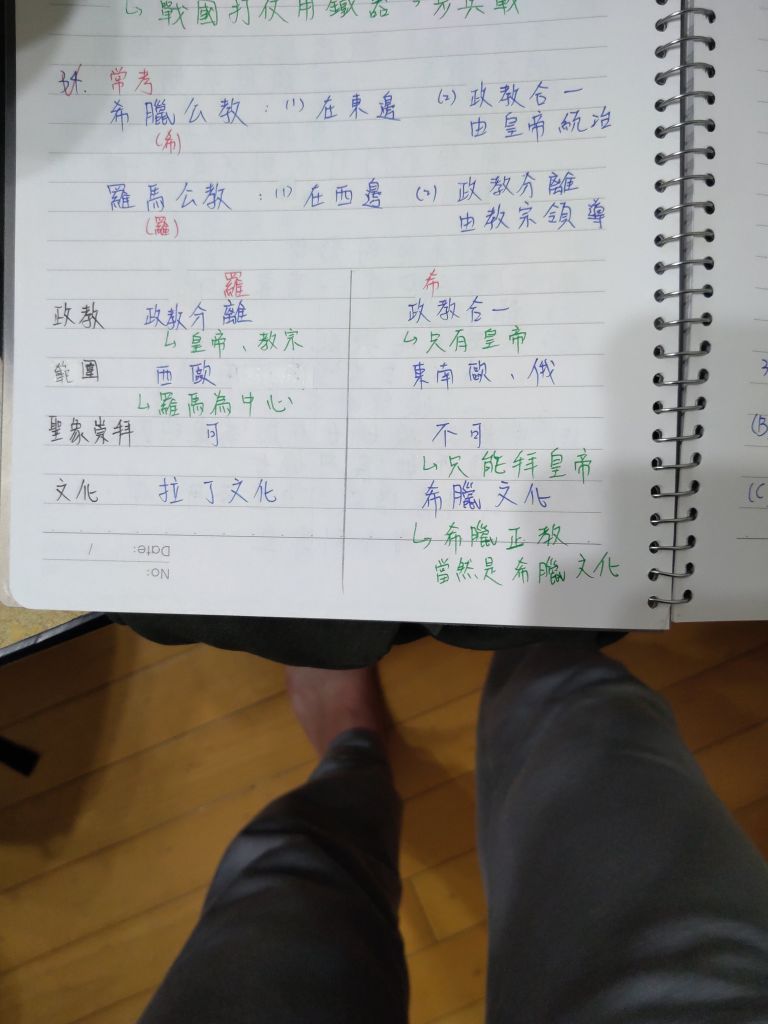 ↳ 戰國打仗用鐵器、步兵戰
34. 常考
希臘公教：(1) 在東邊 (2) 政教合一
(希) 由皇帝統治
羅馬公教：(1) 在西邊 (2) 政教分離
(羅) 由教宗領導
羅 希
政教 政教分離 政教合一
↳皇帝、教宗 ↳只有皇帝
範圍 西歐 東南歐、俄
↳羅馬為中心
聖象崇拜 可 不可
↳只能拜皇帝
文化 拉丁文化 希臘文化
↳希臘正教
當然是希臘文化
Date: /
No:
(B
(C